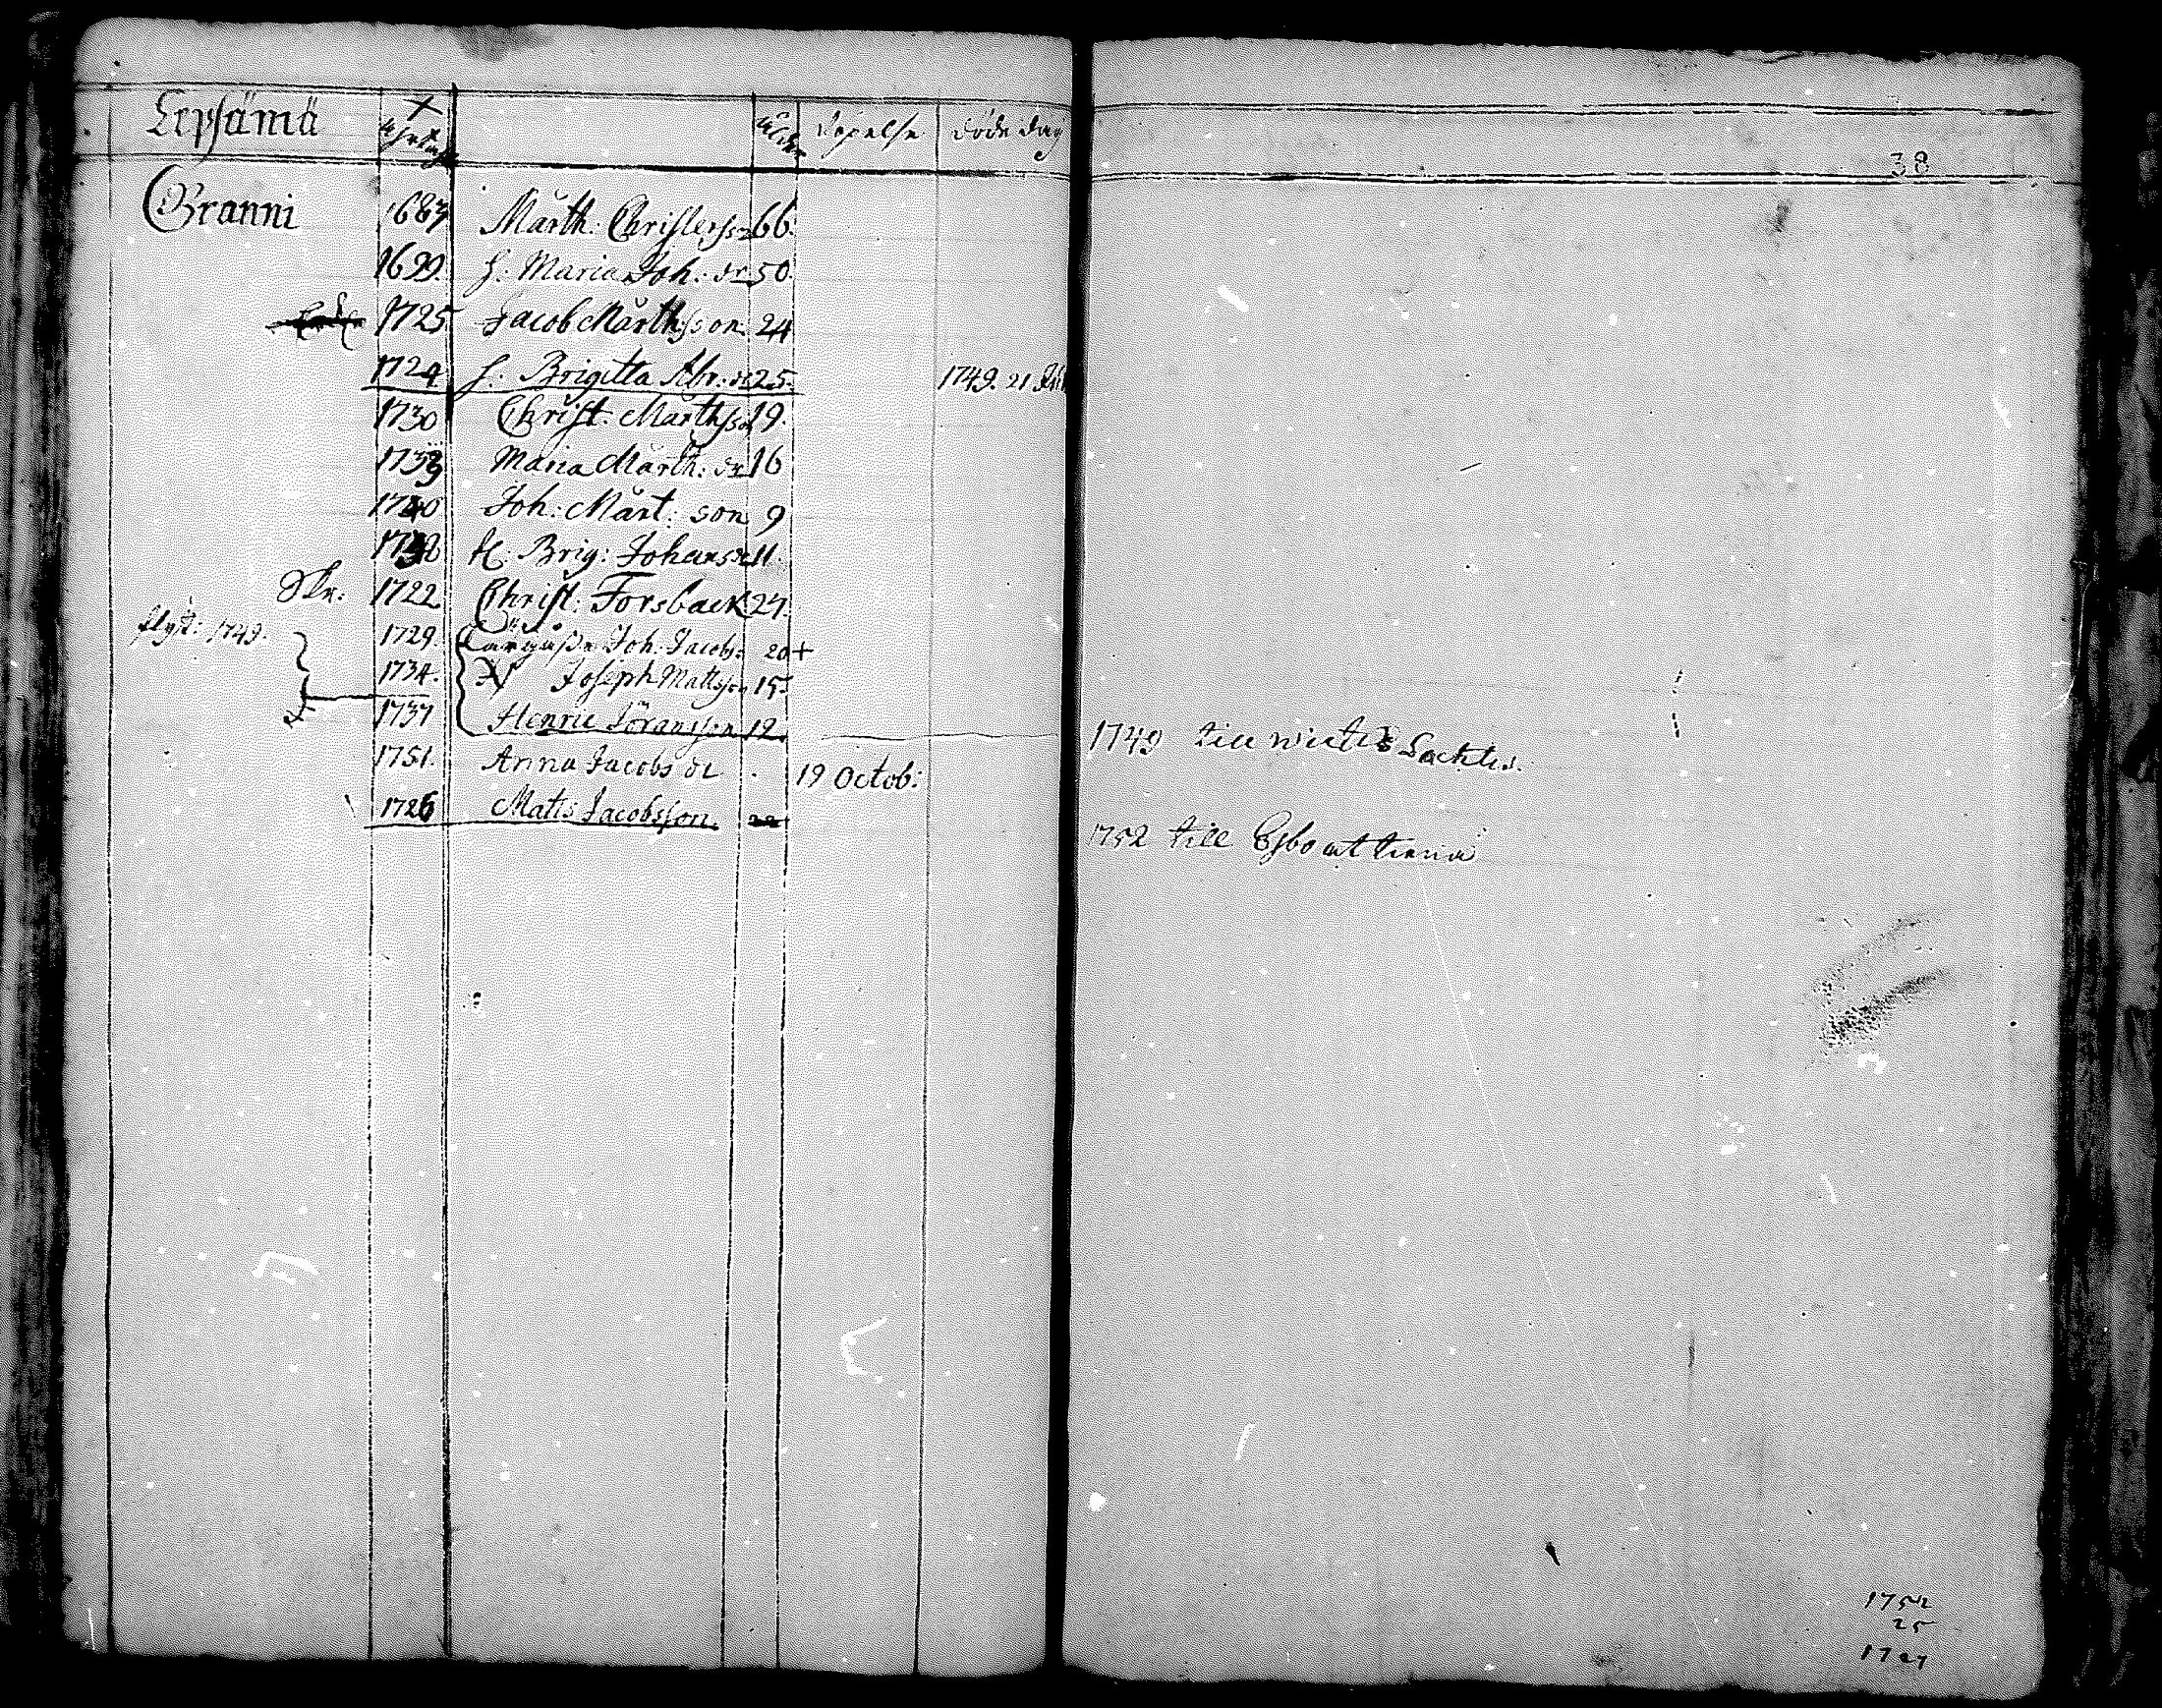 Lepsämä Ålder Döpelse Döde dag
38
Granni 1683 Mårth: Christerss 66.
1699. h: Maria Joh: dr 50.
1725 Jacob Mårthsson 24
1724 h: Brigitta Abr: dr 25. 1749. 21
1730 Christ: Mårthsson 19.
1733 Maria Mårth: dr 16
1740 Joh: Mårt: son 9
H: Brig: Johansdr 11.
Skr: 1722 Christ: Forsback 27.
flyt: 1749. 1729. Joh: Jacobs: 20 +
1734. Joseph Mattsson 15.
1737 Henric Göransson 12. 1749 till Lachtis.
1751. Anna Jacobs dr . 19 Octob:
1726 Matts Jacobsson. 22 1752 till Esbo at tiena
1752
25
1727